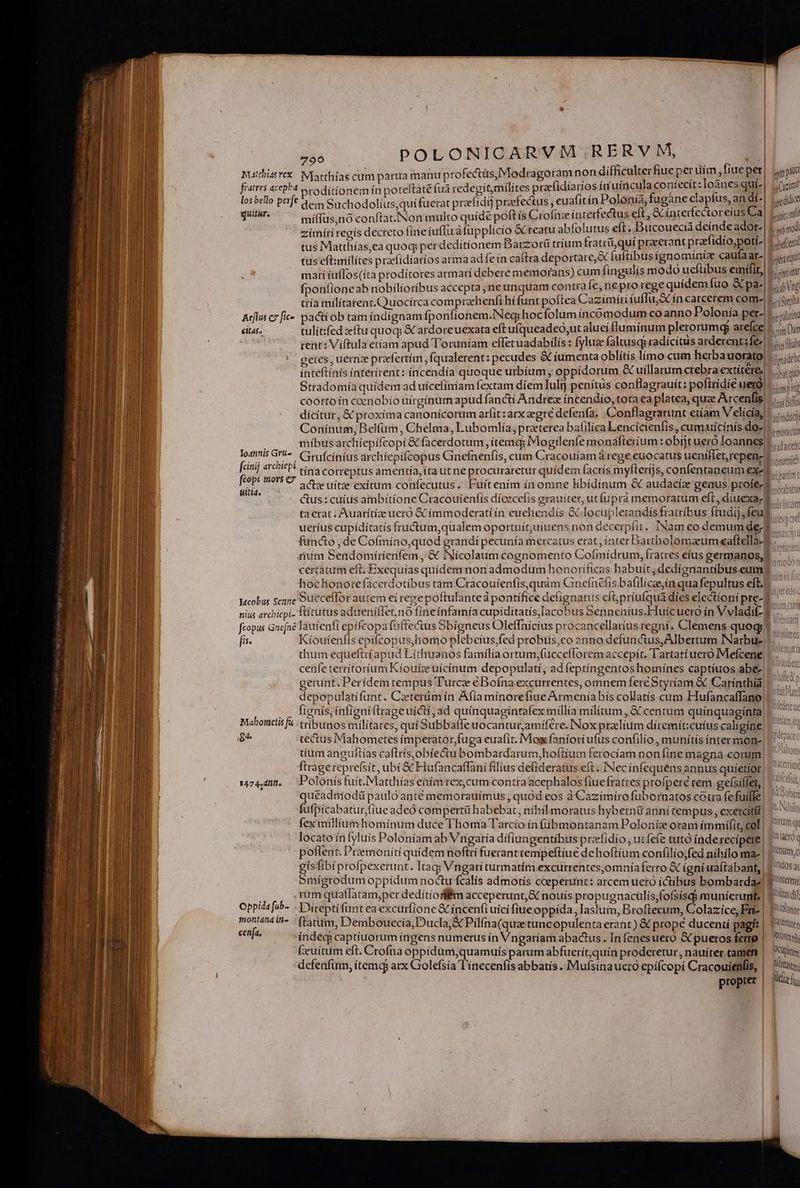 790 POLONICARVM RERVM,
Matthias rex
fratres acephа
los bello perse
quitur.
Matthias cum parua manu profectus, Modragoram non difficulter siue per uim, siue per
proditionem in potestatē suā redegit, milites præsidiarios in uincula coniecit: Ioānes qui-
dem Suchodolius, qui fuerat præsidij præfectus, euasit in Poloniā, fugāne elapsus, an di-
missus, nō constat. Non multo quidē post is Crosnæ interfectus est, & interfector eius Ca
zimiri regis decreto sine iustira supplicio & reatu absolutus est. Bucouecia deinde ador-
tus Matthias, ea quoq; per deditionem Barzorū trium fratrū, qui præerant præsidio, poti-
tus est: milites præsidiarios arma ad se in castra deportare, & fustibus ignominiæ causa ar-
mari iussos (ita proditores armari debere memorans) cum singulis modo uestibus emisit,
sponsione ab nobilioribus accepta, ne unquam contra se, ne pro rege quidem suo & pa-
tria militarent. Quocirca comprahensi hi sunt postea Cazimiri iussu, & in carcerem com-
Aestus & sic-
citas.
pacti ob tam indignam sponsionem. Neq; hoc solum incōmodum eo anno Polonia per-
tulit: sed æstu quoq; & ardore uexata est usqueadeo, ut aluei fluminum plerorumq; aresce
rent: Vistula etiam apud Toruniam esset uadabilis: syluæ saltusq; radicitus arderent: se-
getes, uernæ præsertim, squalerent: pecudes & iumenta oblitis limo cum herba uorato
intestinis interirent: incendia quoque urbium, oppidorum & uillarum crebra extitēre.
Stradomia quidem ad uicesimam sextam diem Iulij penitus conflagrauit: postridie uerò
coorto in cœnobio uirginum apud sancti Andreæ incendio, tota ea platea, quæ Arcensis
dicitur, & proxima canonicorum arsit: arx ægrè defensa. Conflagrarunt etiam Velicia,
Coninum, Belsum, Chelma, Lubomlia, præterea basilica Lenciciensis, cum uicinis do-
mibus archiepiscopi & sacerdotum, itemq; Mogilense monasterium: obijt uerò Ioannes
Ioannis Gru-
scinij archiepi
scopi mors &
uitia.
Gruscinius archiepiscopus Gnesnensis, cum Cracouiam à rege euocatus uenisset, repen-
tina correptus amentia, ita ut ne procuraretur quidem sacris mysterijs, consentaneum ex-
actæ uitæ exitum consecutus. Fuit enim in omne libidinum & audaciæ genus profe-
ctus: cuius ambitione Cracouiensis diœcesis grauiter, ut suprà memoratum est, diuexa-
ta erat. Auaritiæ uerò & immoderati in euehendis & locupletandis fratribus studij, seu
uerius cupiditatis fructum, qualem oportuit, uiuens non decerpsit. Nam eo demum de-
functo, de Cosmino, quod grandi pecunia mercatus erat, inter Bartholomæum castella-
num Sendomiriensem, & Nicolaum cognomento Cosmidrum, fratres eius germanos,
certatum est. Exequias quidem non admodum honorificas habuit, dedignantibus eum
hoc honore sacerdotibus tam Cracouiensis, quàm Gnesnēsis basilicæ, in qua sepultus est.
Iacobus Senne
nius archiepi-
scopus Gnesnē
sis.
Successor autem ei rege postulante à pontifice designatus est, priusquā dies electioni præ-
stitutus aduenisset, nō sine infamia cupiditatis, Iacobus Sennenius. Huic uerò in Vvladis-
lauiensi episcopa suffectus Sbigneus Olessnicius procancellarius regni. Clemens quoq;
Kiouiensis episcopus, homo plebeius, sed probus, eo anno defunctus, Albertum Narbu-
thum equestri apud Lithuanos familia ortum, successorem accepit. Tartari uerò Mescene
cense territorium Kiouiæ uicinum depopulati, ad septingentos homines captiuos abe-
gerunt. Per idem tempus Turcæ è Bosna excurrentes, omnem fere Styriam & Carinthiā
depopulati sunt. Cæterùm in Asia minore siue Armenia bis collatis cum Husancassano
signis, insigni strage uicti, ad quinquaginta sex millia militum, & centum quinquaginta
Mahometis fu
ga.
tribunos militares, qui Subbasse uocantur, amisēre. Nox prælium diremit: cuius caligine
tectus Mahometes imperator, fuga euasit. Mox saniori usus consilio, munitis inter mon-
tium angustias castris, obiectu bombardarum, hostium ferociam non sine magna eorum
strage repressit, ubi & Husancassani filius desideratus est. Nec insequens annus quietior
1474. ann.
Polonis fuit. Matthias enim rex, cum contra acephalos siue fratres prosperè rem gesisset,
quēadmodū paulo antè memorauimus, quòd eos à Cazimiro subornatos cōtra se fuisse
suspicabatur, siue adeò compertū habebat, nihil moratus hybernū anni tempus, exercitū
sex millium hominum duce Thoma Tarcio in subniontanam Poloniæ oram immisit, col
locato in syluis Poloniam ab Vngaria disiungentibus præsidio, ut sese tutò inde recipere
possent. Præmoniti quidem nostri fuerant tempestiuè de hostium consilio, sed nihilo ma-
gis sibi prospexerunt. Itaq; Vngari turmatim excurrentes, omnia ferro & igni uastabant,
Smigrodum oppidum noctu scalis admotis cœperunt: arcem uerò ictibus bombarda-
rum quassatam, per deditionem acceperunt, & nouis propugnaculis, fossisq; munierunt.
Oppida sub-
montana in-
censa.
Direpti sunt ea excursione & incensi uici siue oppida, Iaslum, Brostecum, Colazice, Fri-
statum, Dembouecia, Ducla, & Pilsna (quæ tunc opulenta erant) & propè ducenti pagi:
indeq; captiuorum ingens numerus in Vngariam abactus. In senes uerò & pueros ferro
sæuitum est. Crosna oppidum, quamuis parum abfuerit, quin proderetur, nauiter tamen
defensum, itemq; arx Golesia Tinecensis abbatis. Musina uerò episcopi Cracouiensis,
propter